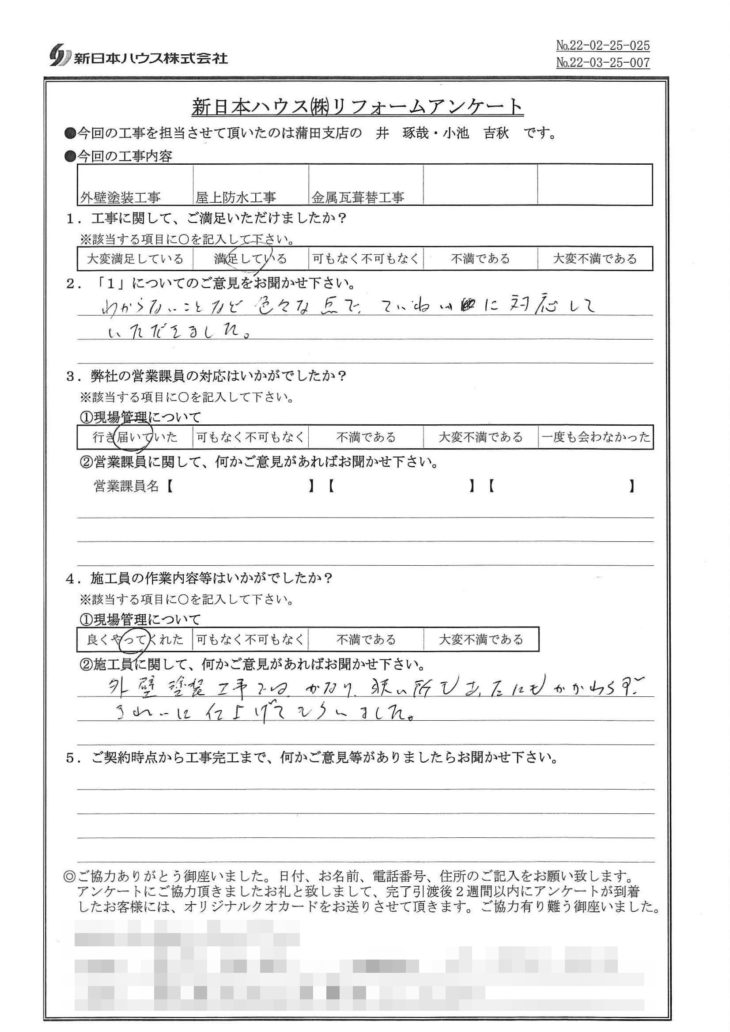 新日本ハウス株式会社
№22-02-25-025
№22-03-25-007
新日本ハウス㈱リフォームアンケート
●今回の工事を担当させて頂いたのは蒲田支店の 井 琢哉・小池 吉秋 です。
●今回の工事内容
外壁塗装工事 屋上防水工事 金属瓦葺替工事
1．工事に関して、ご満足いただけましたか？
※該当する項目に○を記入して下さい。
大変満足している 満足している 可もなく不可もなく 不満である 大変不満である
2．「1」についてのご意見をお聞かせ下さい。
わからないことなど色々な点で、ていねいに対応して
いただきました。
3．弊社の営業課員の対応はいかがでしたか？
※該当する項目に○を記入して下さい。
①現場管理について
行き届いていた 可もなく不可もなく 不満である 大変不満である 一度も会わなかった
②営業課員に関して、何かご意見があればお聞かせ下さい。
営業課員名【 】【 】【 】
4．施工員の作業内容等はいかがでしたか？
※該当する項目に○を記入して下さい。
①現場管理について
良くやってくれた 可もなく不可もなく 不満である 大変不満である
②施工員に関して、何かご意見があればお聞かせ下さい。
外壁塗装工事では かなり、狭い所も にもかかわらず
きれいに仕上げてもらいました。
5．ご契約時点から工事完工まで、何かご意見等がありましたらお聞かせ下さい。
◎ご協力ありがとう御座いました。日付、お名前、電話番号、住所のご記入をお願い致します。
アンケートにご協力頂きましたお礼と致しまして、完了引渡後2週間以内にアンケートが到着
したお客様には、オリジナルクオカードをお送りさせて頂きます。ご協力有り難う御座いました。